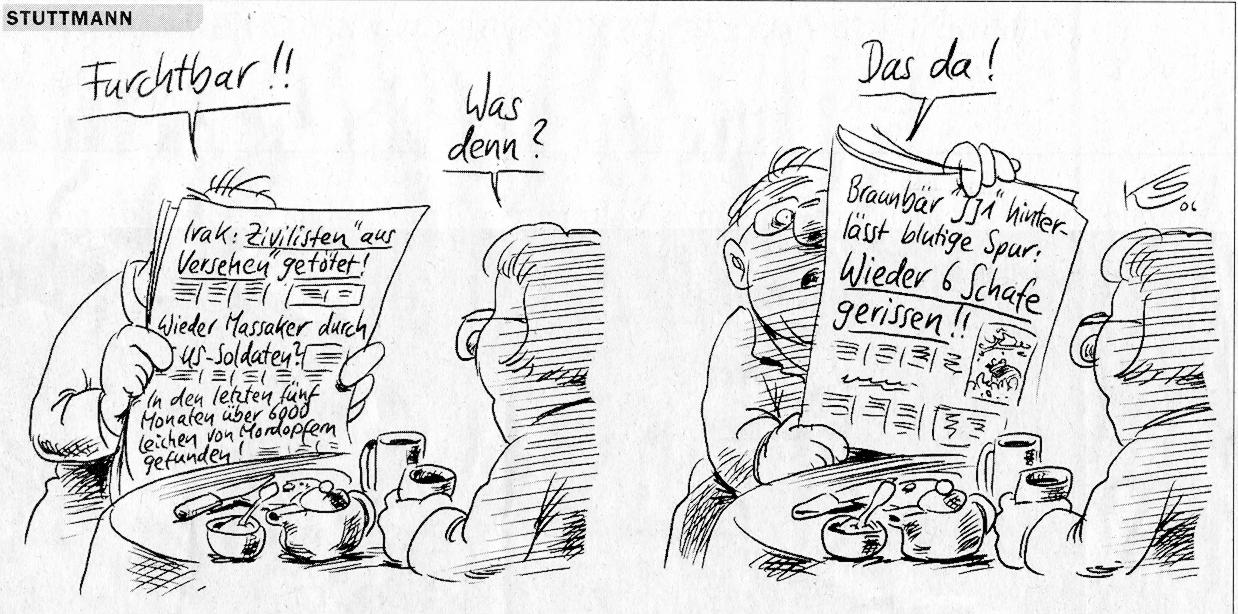 STUTTMANN
Furchtbar!!
Was
denn?
Irak: Zivilisten "aus
Versehen" getötet!
Wieder Massaker durch
US-Soldaten?
In den letzten fünf
Monaten über 6000
Leichen von Mordopfern
gefunden!
Das da!
Braunbär "JJ1" hinter-
lässt blutige Spur:
Wieder 6 Schafe
gerissen!!
KS.06